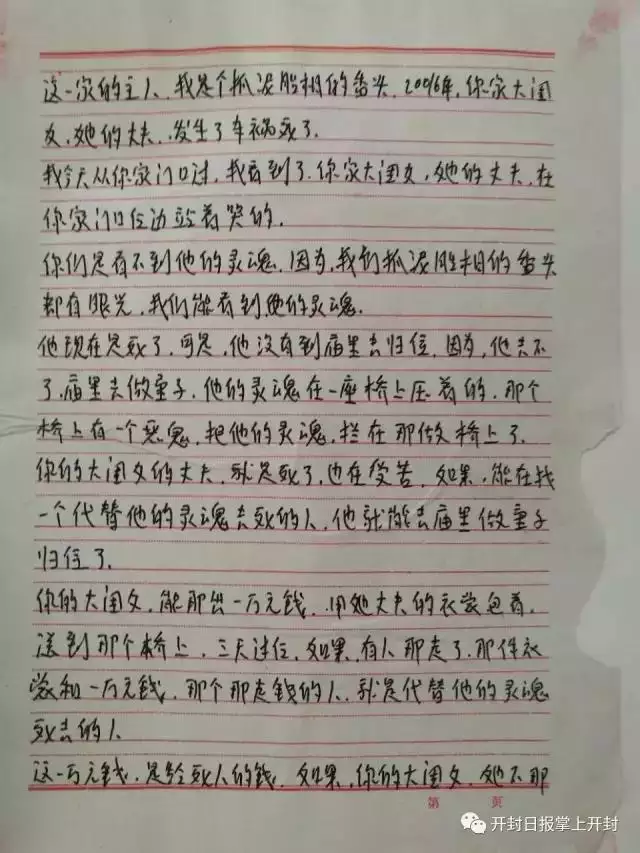 这一家的主人、我是个抓泥胎相的畨头、2006年,你家大闺
女,她的丈夫,发生了车祸死了.
我今天从你家门口过,我看到了.你家大闺女,她的丈夫,在
你家门口位边站着哭的.
你们是看不到他的灵魂.因为,我们抓泥胎相的畨头
都有眼光,我们能看到他的灵魂.
他现在是死了,可是,他没有到庙里去归位,因为,他去不
了,庙里去做童子,他的灵魂在一座桥上压着的.那个
桥上有一个恶鬼,把他的灵魂,拦在那做桥上了.
你的大闺女的丈夫,就是死了,也在受苦,如果,能在找
一个代替他的灵魂去死的人,他就能去庙里做童子
归位了.
你的大闺女,能那出一万元钱,用她丈夫的衣裳包着,
送到那个桥上,三天过位,如果,有人那走了,那件衣
裳和一万元钱,那个那走钱的人,就是代替他的灵魂
死去的人
这一万元钱,是给死人的钱,如果,你的大闺女,她不那
第 页
开封日报掌上开封